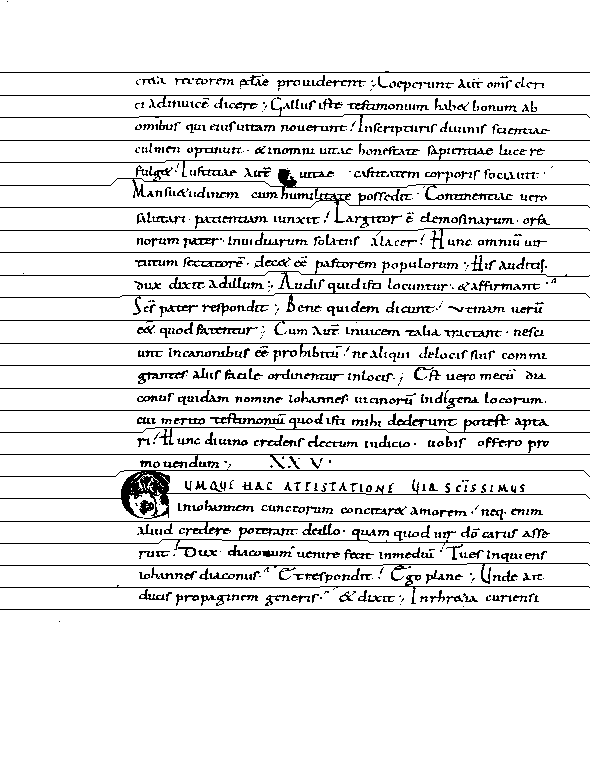 rectorem p̄dic̄tae prouiderent ; Coeperunt aut̄ om̄s cleri
ci adinuicē dicere ; Gallus iste testimonium habet bonum ab
omībus qui eius uitam nouerunt ! In scripturis diuinis scientiae
culmen optinuit · & in omni uitae honestate sapientiae luce re
fulget · Iustitiae aut̄ uitae castitatem corporis sociauit ·
Mansu&udinem cum humilitate possedit · Continentiae uero
salutari · patientiam iunxit ! Largitor ē elemosinarum · orfa
norum pater · Inuiduarum solatiis alacer ! Hunc omniū uir
tutum sectatorē · dec& eē pastorem populorum ; His auditis ·
dux dixit ad illum ; Audis quid isti locuntur · & affirmant ·
Sc̄s pater respondit ; Bene quidem dicunt · utinam uerū
e&̄ quod fatentur ; Cum aut̄ inuicem talia tractant · nesci
unt in canonibus eē prohibitū ! ne aliqui de locis suis commi
grantes aliis facile ordinentur in locis ; Est uero mecū dia
conus quidam nomine Iohannes · uicinorū indigena locorum ·
cui merito testimoniū quod isti mihi dederunt potest apta
ri ! Hunc diuino credens electum iudicio · uobis offero pro
mouendum ; XXV ·
CUMQUE HAC ATTESTATIONE UIR SCISSIMUS
In iohannem cunctorum concitaret amorem / neq · enim
aliud credere poterant de illo · quam quod uir dō carus asse
ruit ! Dux diaconum uenire fecit in mediū ! Tu es inquiens
iohannes diaconus · Et respondit ! Ego plane ; Unde ait
ducis propaginem generis · & dixit ; In rhetia curiensi